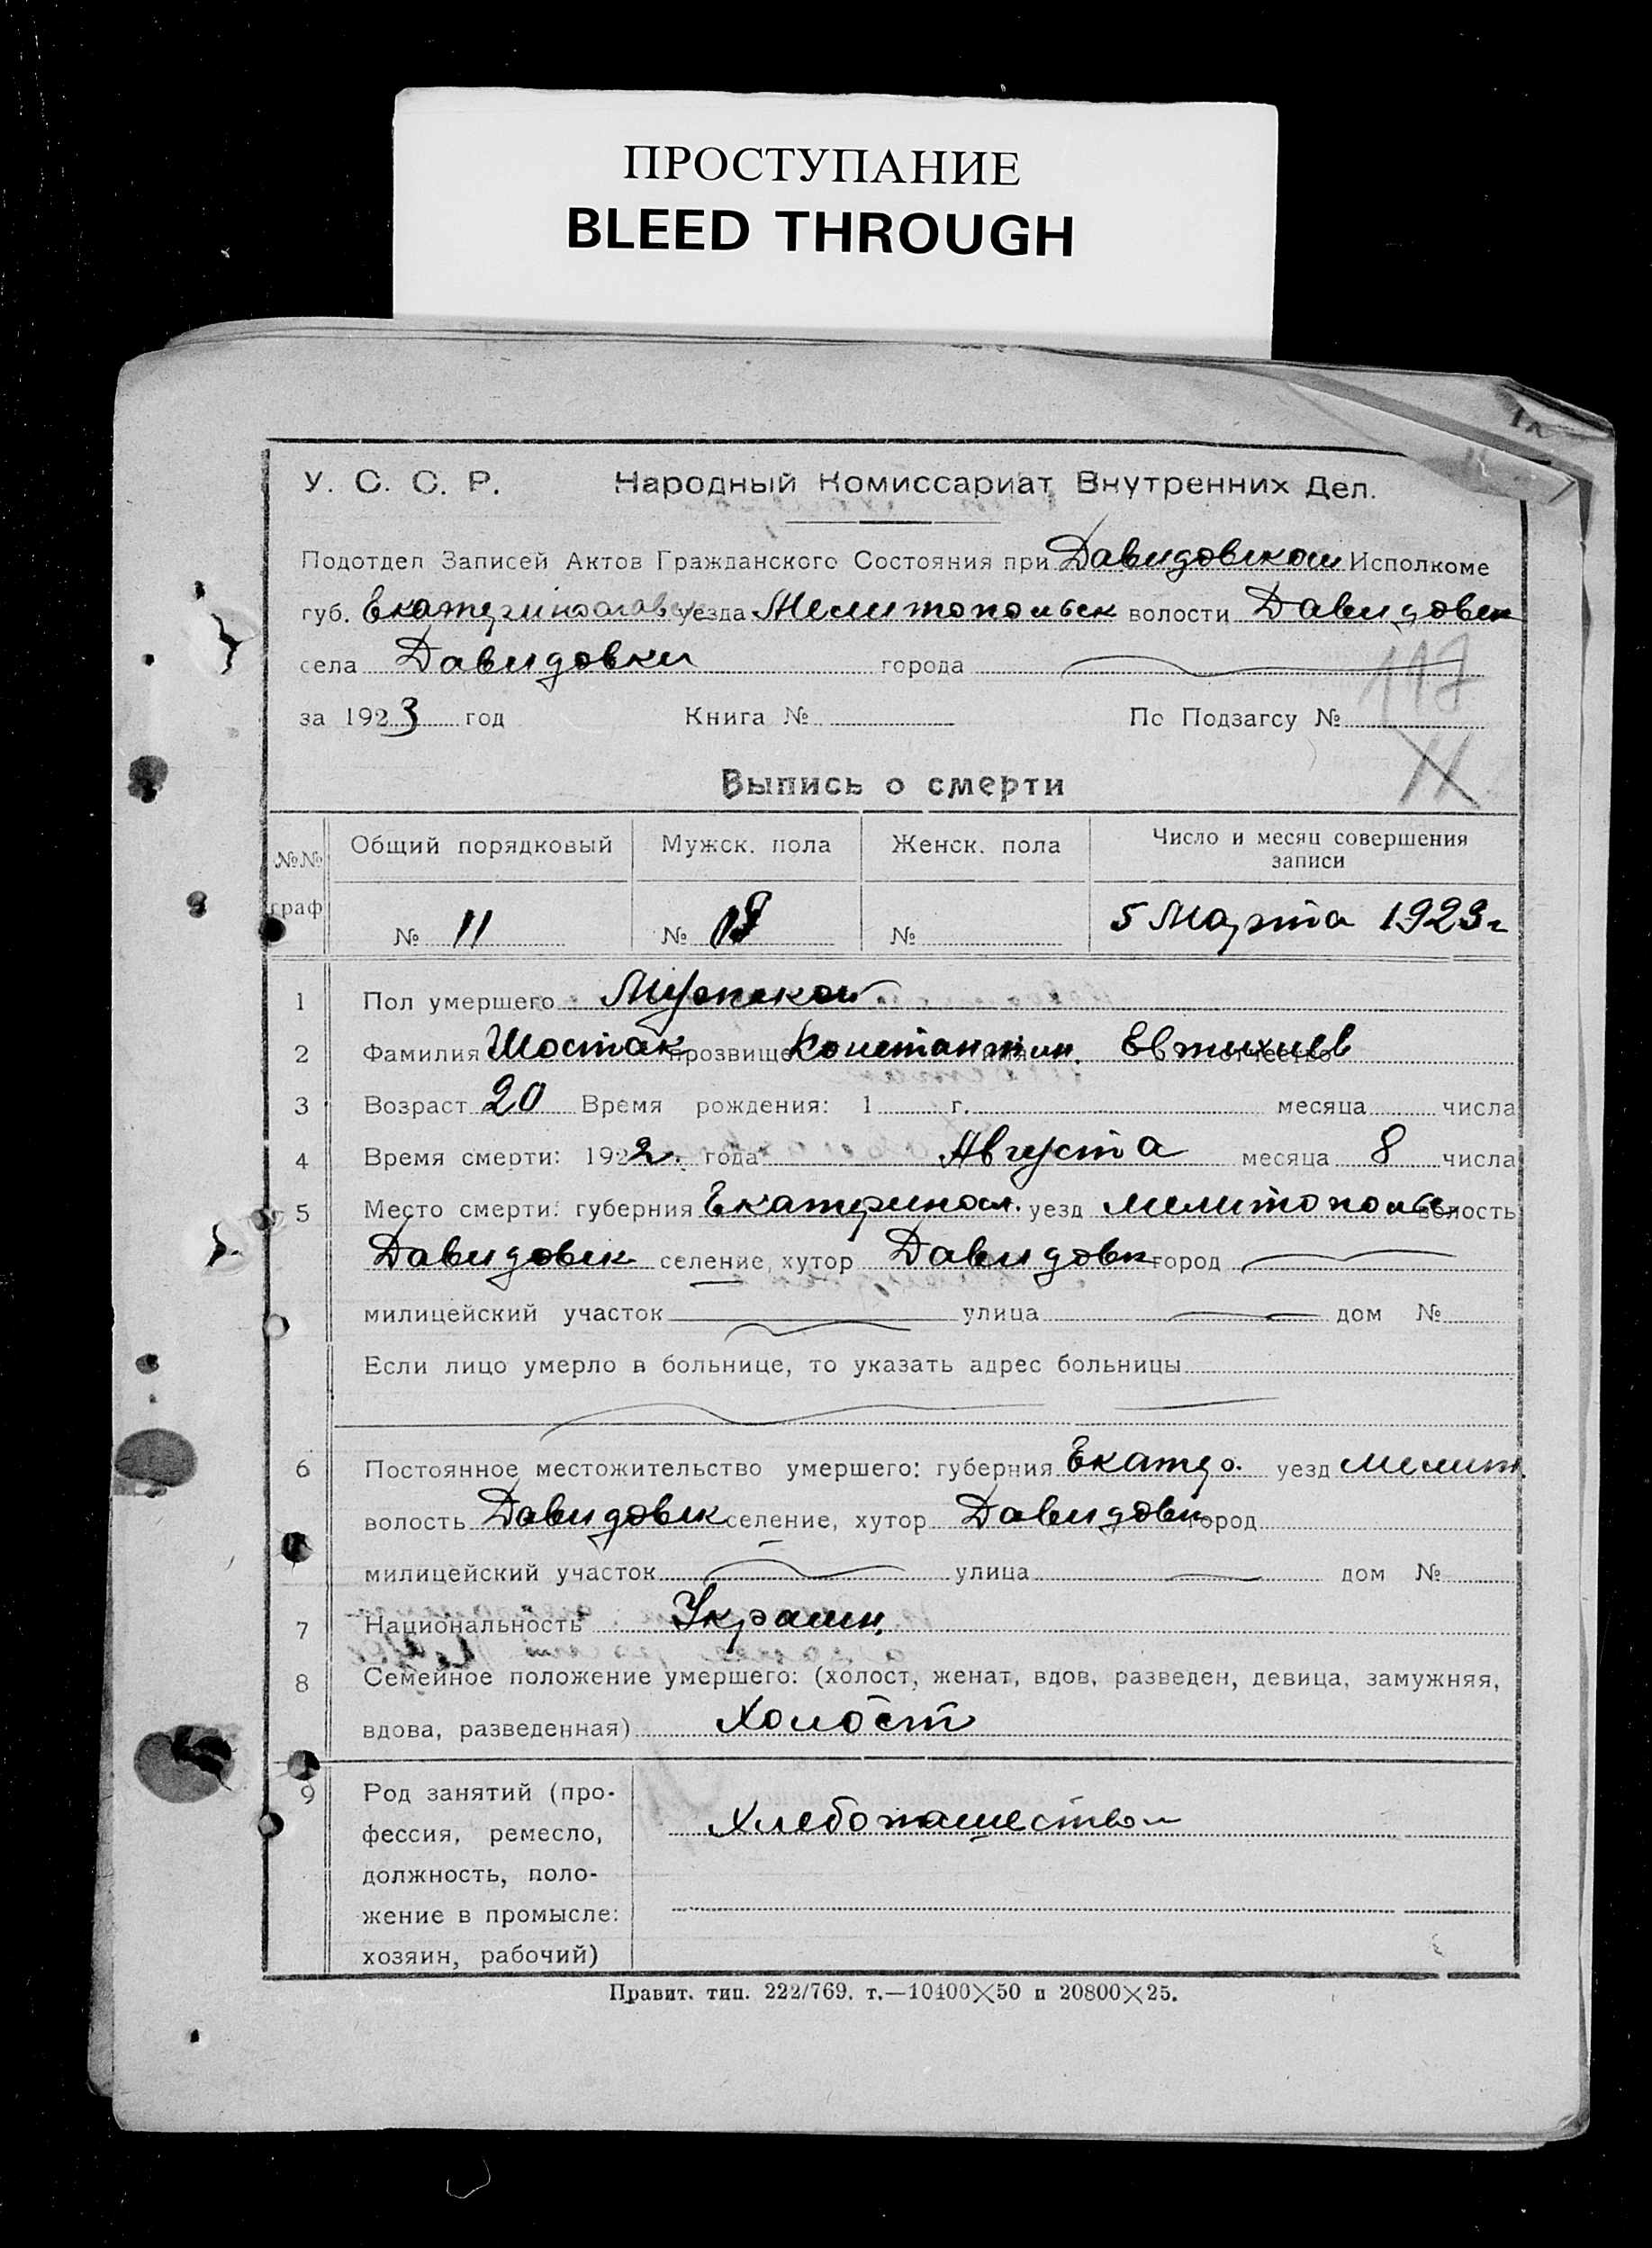 ПРОСТУПАНИЕ
BLEED THROUGH
У. С. С. Р. Народный Комиссариат Внутренних Дел.
Подотдел Записей Актов Гражданского Состояния при Давидовском Исполкоме
губ. Екатеринославск уезда Мелитопольск волости Давидовск
села Давидовки города
за 1923 год Книга № По Подзагсу № 117
11
Выпись о смерти
№№ граф Общий порядковый Мужск. пола Женск. пола Число и месяц совершения записи
№ 11 № № 5 Марта 1923 г
1 Пол умершего Мужской
2 Фамилия Шостак прозвище Константин Евтихиев отчество
3 Возраст 20 Время рождения: 1 г. месяца числа
4 Время смерти: 1922. года Августа месяца 8 числа
5 Место смерти: губерния Екатеринос. уезд Мелитопольс волость
Давидовск селение, хутор Давидовк город
милицейский участок улица дом №
Если лицо умерло в больнице, то указать адрес больницы
6 Постоянное местожительство умершего: губерния Екатер. уезд Мелит.
волость Давидовск селение, хутор Давидовк город
милицейский участок улица дом №
7 Национальность Украин.
8 Семейное положение умершего: (холост, женат, вдов, разведен, девица, замужняя,
вдова, разведенная) Холост
9 Род занятий (про-
фессия, ремесло, Хлебопашеством
должность, поло-
жение в промысле:
хозяин, рабочий)
Правит. тип. 222/769. т.—10400×50 и 20800×25.